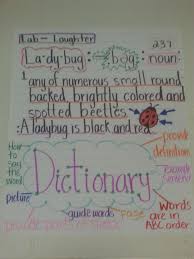 Lab - Laughter
237
La·dybug: bŭg: noun:
1. any of numerous small round
backed, brightly colored and
spotted beetles.
: A ladybug is black and red.
provide
definition
How
to
say the
word
Dictionary
example
sentence
picture
guide words
page
Words
are in
ABC order
provide parts of speech